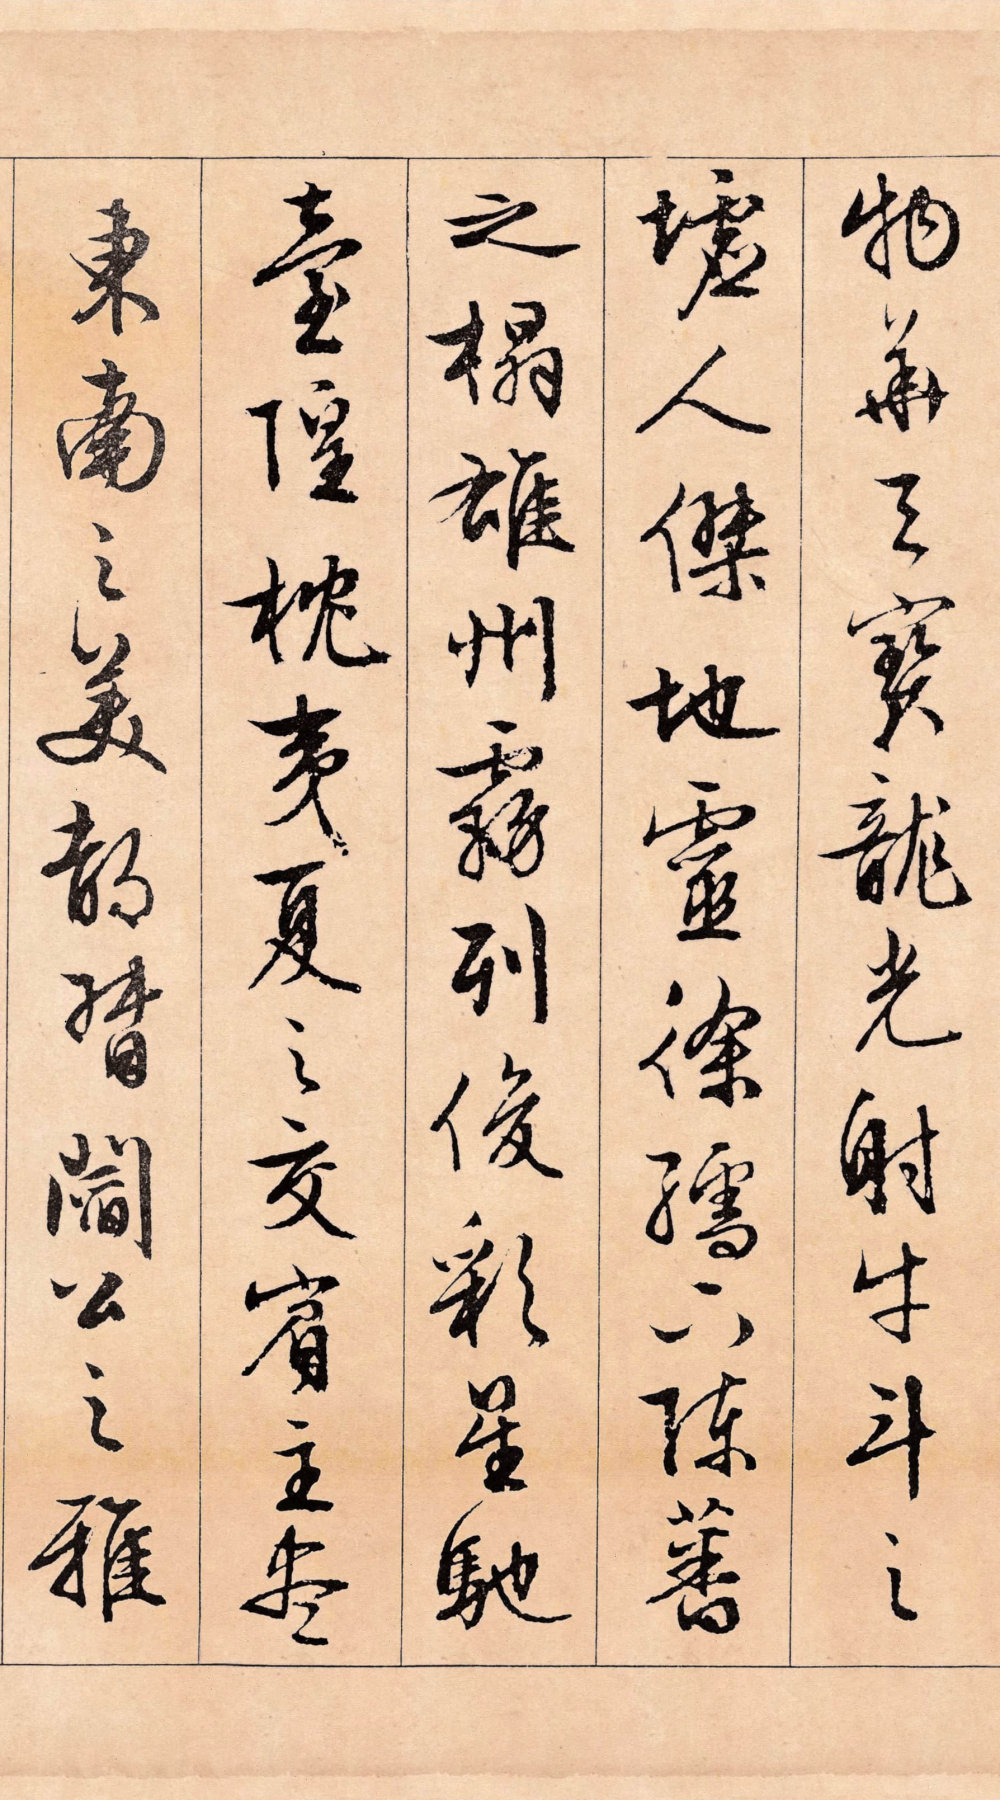 物華天寶龍光射牛斗之
墟人傑地靈徐孺下陳蕃
之榻雄州霧列俊彩星馳
臺隍枕夷夏之交賓主盡
東南之美都督閻公之雅